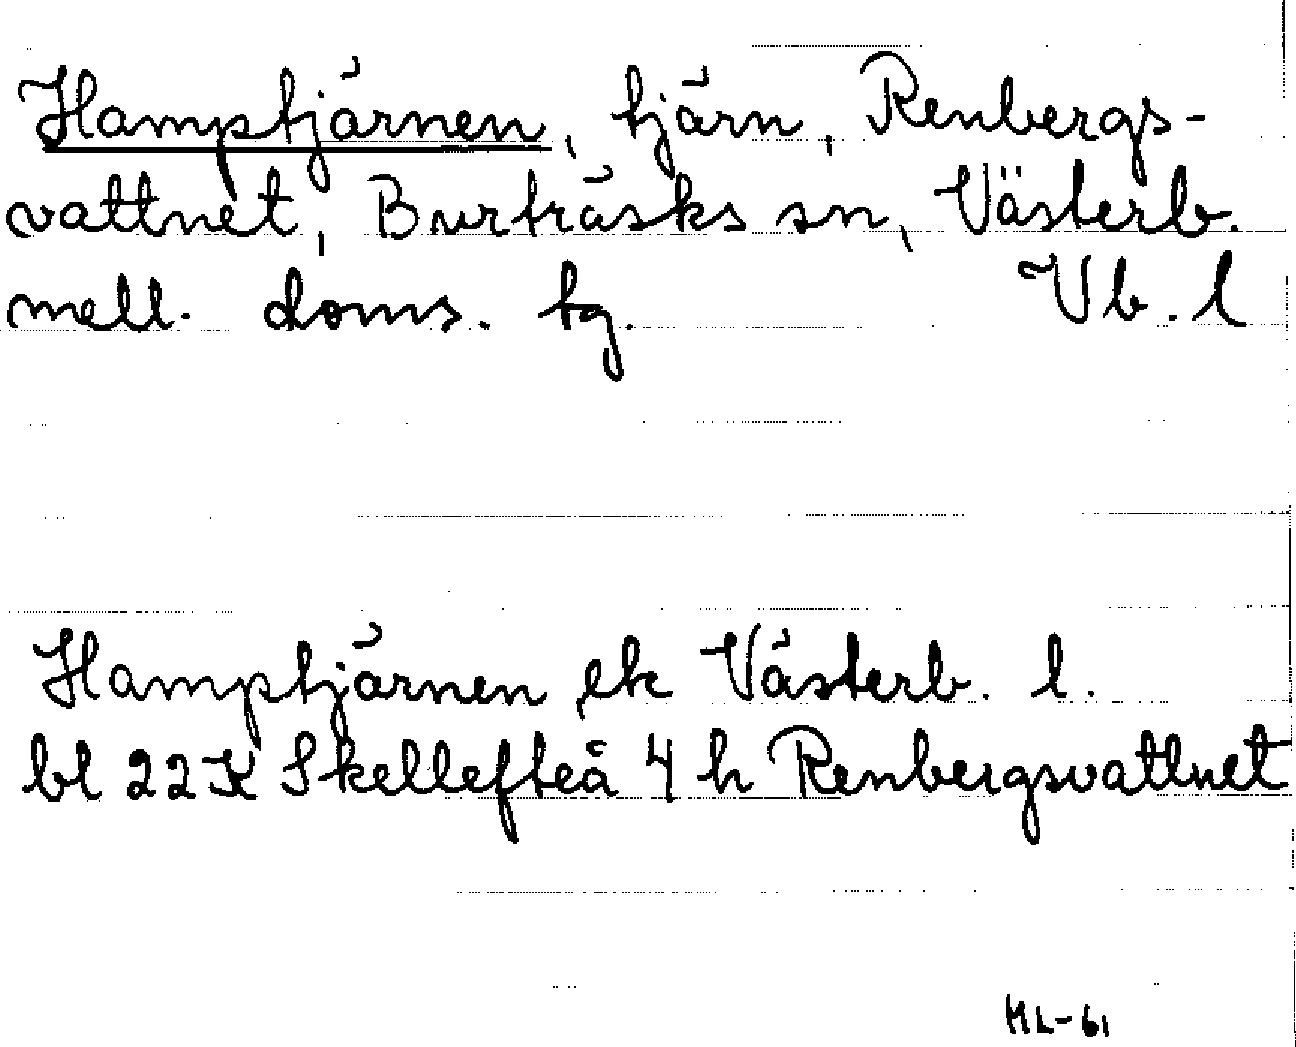 Hamptjärnen, tjärn, Renbergs-
vattnet, Burträsks sn, Västerb.
mell. doms. tg. Vb. l
Hamptjärnen ek Västerb. l.
bl 22K Skellefteå 4 h Renbergsvattnet
ML-61